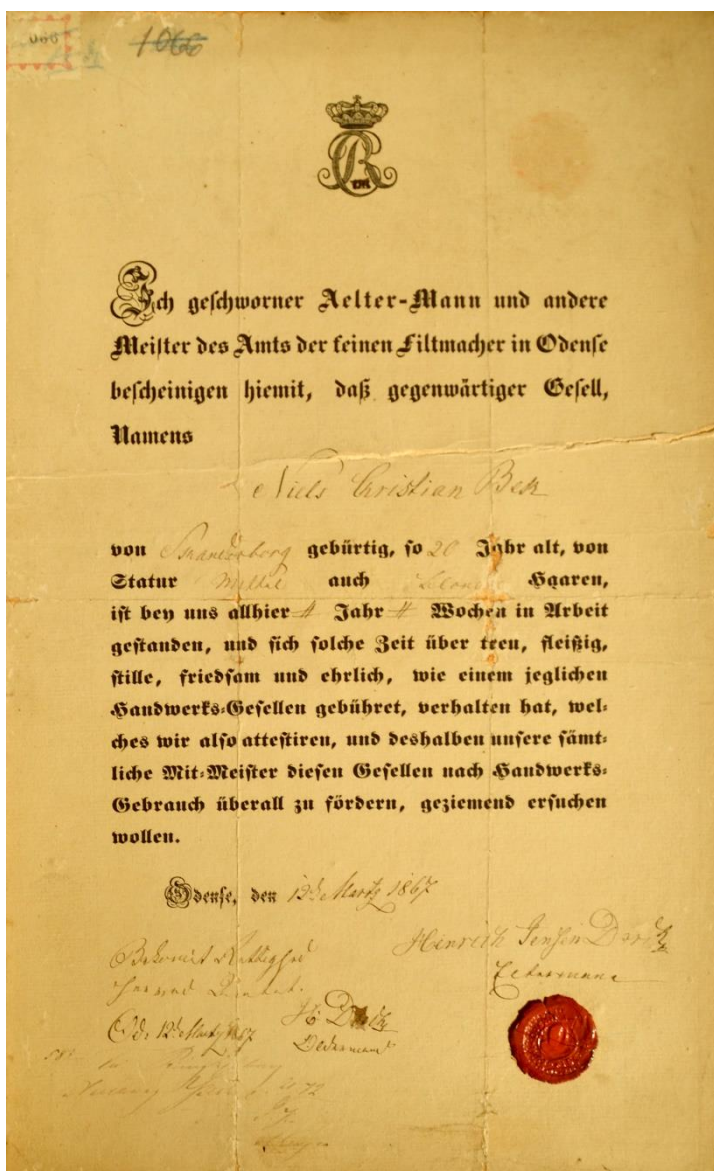 066
1066
Ich geschworner Aelter-Mann und andere
Meister des Amts der feinen Filtmacher in Odense
bescheinigen hiemit, daß gegenwärtiger Gesell,
Namens
Niels Christian Bek
von Skanderborg gebürtig, so 20 Jahr alt, von
Statur Mittel auch Haaren,
ist bey uns allhier Jahr Wochen in Arbeit
gestanden, und sich solche Zeit über treu, fleißig,
stille, friedsam und ehrlich, wie einem jeglichen
Handwerks-Gesellen gebühret, verhalten hat, wel-
ches wir also attestiren, und deshalben unsere sämt-
liche Mit-Meister diesen Gesellen nach Handwerks-
Gebrauch überall zu fördern, geziemend ersuchen
wollen.
Odense, den 12 Martz 1867
Hinrich Jensen